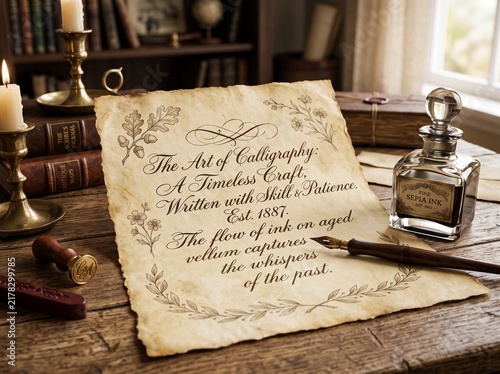 The Art of Calligraphy:
A Timeless Craft,
Written with Skill & Patience.
Est. 1887.
The flow of ink on aged
vellum captures
the whispers
of the past.
FINE
SEPIA INK
Adobe Stock | #2178299785